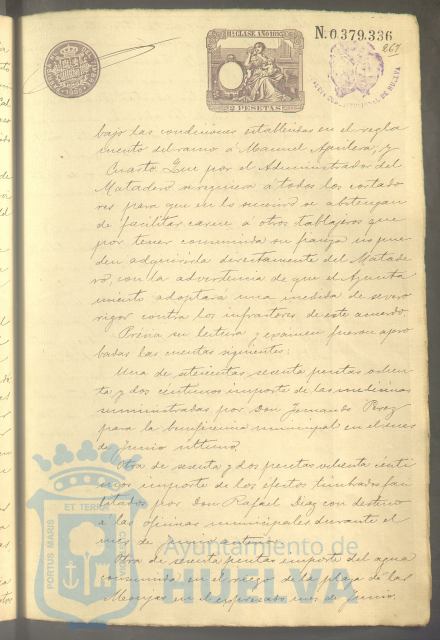 11ª CLASE AÑO 1895
N.0.379.336
267
2 PESETAS
bajo las condiciones establecidas en el regla
mento del ramo á Manuel Aguilera; y
Cuarto. Que por el Administrador del
Matadero se requiera á todos los cortado
res para que en lo sucesivo se abstengan
de facilitar carne á otros tablajeros que
por tener consumida su fianza no pue
dan adquirirla directamente del Matade
ro, con la advertencia de que el Ayunta
miento adoptará una medida de severo
rigor contra los infractores de este acuerdo.
Prévia su lectura y examen fueron apro
badas las cuentas siguientes:
Una de setecientas sesenta pesetas ochen
ta y dos céntimos importe de las medicinas
suministradas por Don Fernando Perez
para la beneficencia municipal en el mes
de Junio último.
Otra de sesenta y dos pesetas ochenta cénti
mos importe de los efectos timbrados faci
litados por Don Rafael Diaz con destino
á las oficinas municipales durante el
mes de Junio
Otra de sesenta pesetas importe del agua
consumida en el riego de la plaza de las
Monjas en el expresado mes de Junio.
PORTUS MARIS
ET TERRA
Ayuntamiento de
HUELVA